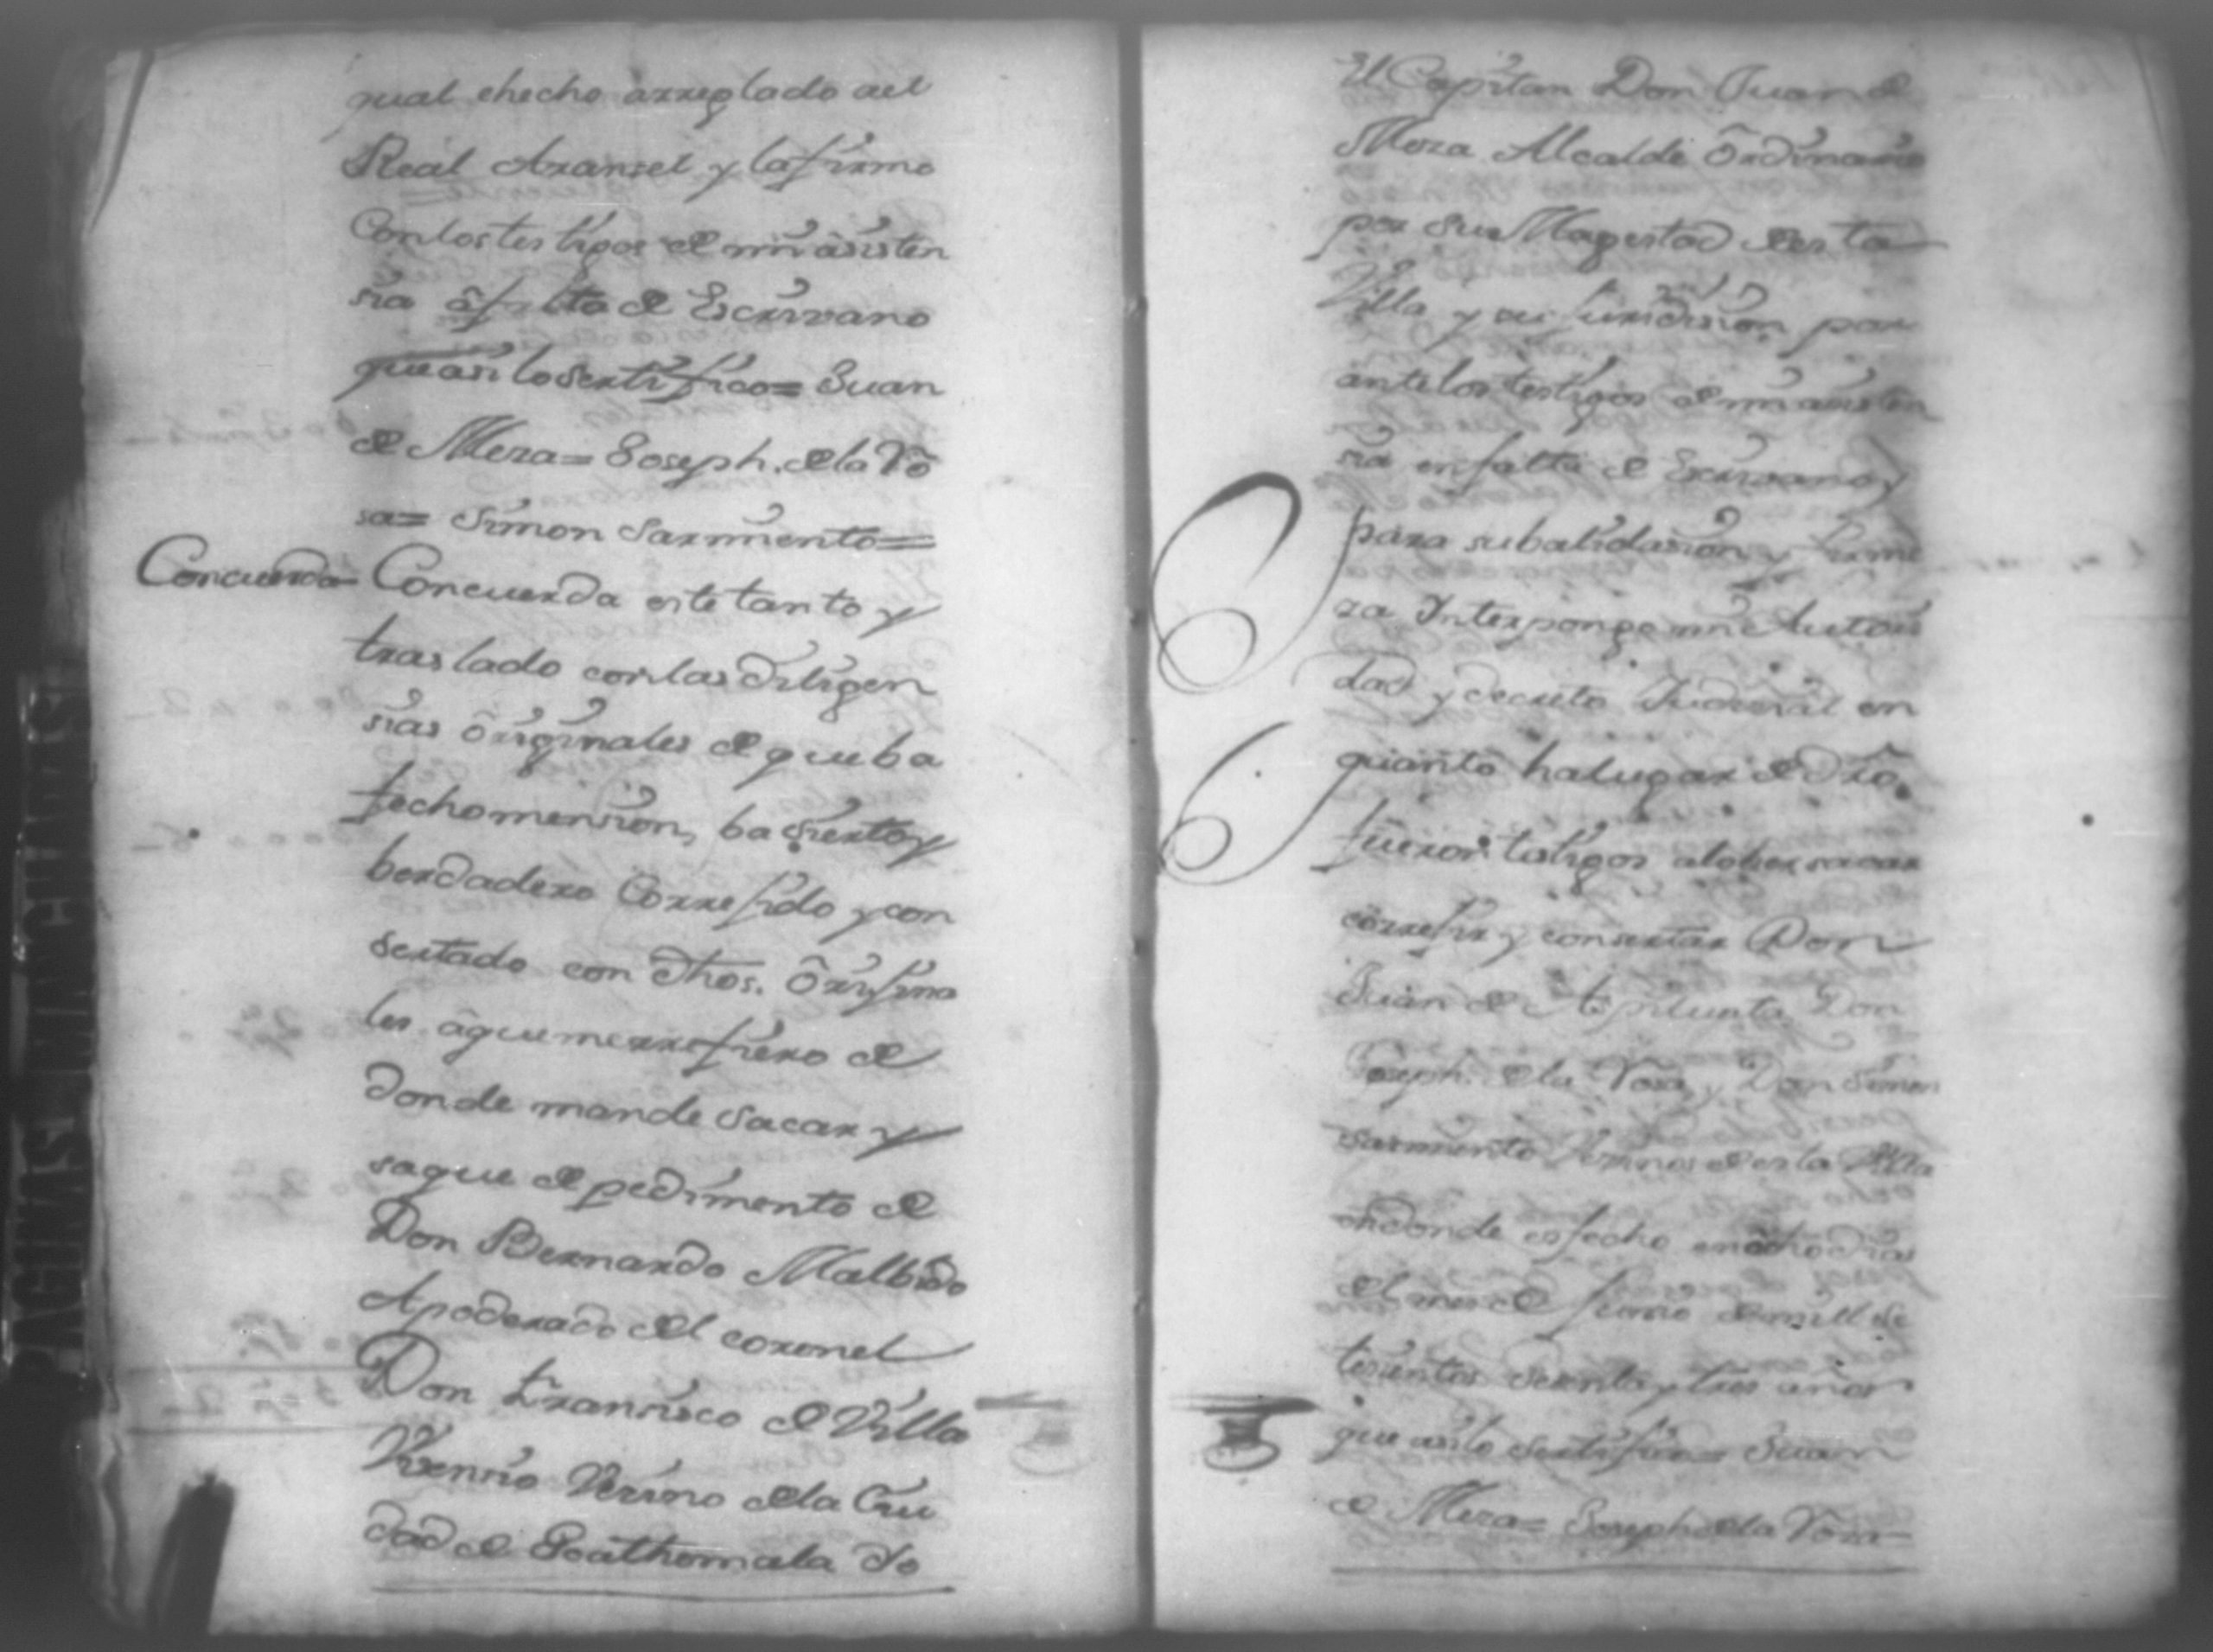 qual ehecho arreglado ael
Real Aransel y lafirmo
Conlos testigos de mi asisten
sia â falta de Escrivano
que asi lo sertifico= Juan
de Meza= Joseph. de la Ro
sa= Simon Sarmiento=
Concuerda Concuerda este tanto y
traslado con las diligen
sias ôriginales de que ba
fecho mension, ba sierto y
berdadero Corrregido y con
sertado con dhos. Ôrigina
les âque me rrefiero de
donde mande Sacar y
saque de pedimento de
Don Bernardo Malbido
Apoderado del coronel
Don Fransisco de Villa
Visensio Vezino de la Ciu
dad de Goathemala Yo
El Capitan Don Juan de
Meza Alcalde Ôrdinario
por Su Magestad de esta
Villa y su jurisdision por
ante los testigos de mi asisten
sia en falta de Escrivano y
para su balidasion y firme
za Interpongo mi Autori
dad y decreto Judicial en
quanto ha lugar de dro.
fueron testigos alo ber sacar
corregir y consertar Don
Juan de Don
Joseph. de la Rosa, y Don Simon
Sarmiento Vezinos de esta Villa
en donde es fecho en ôcho dias
del mes de Junio de mill Se
tesientos sesenta y tres años
que asi lo sertifico= Juan
de Meza= Joseph de la Rosa